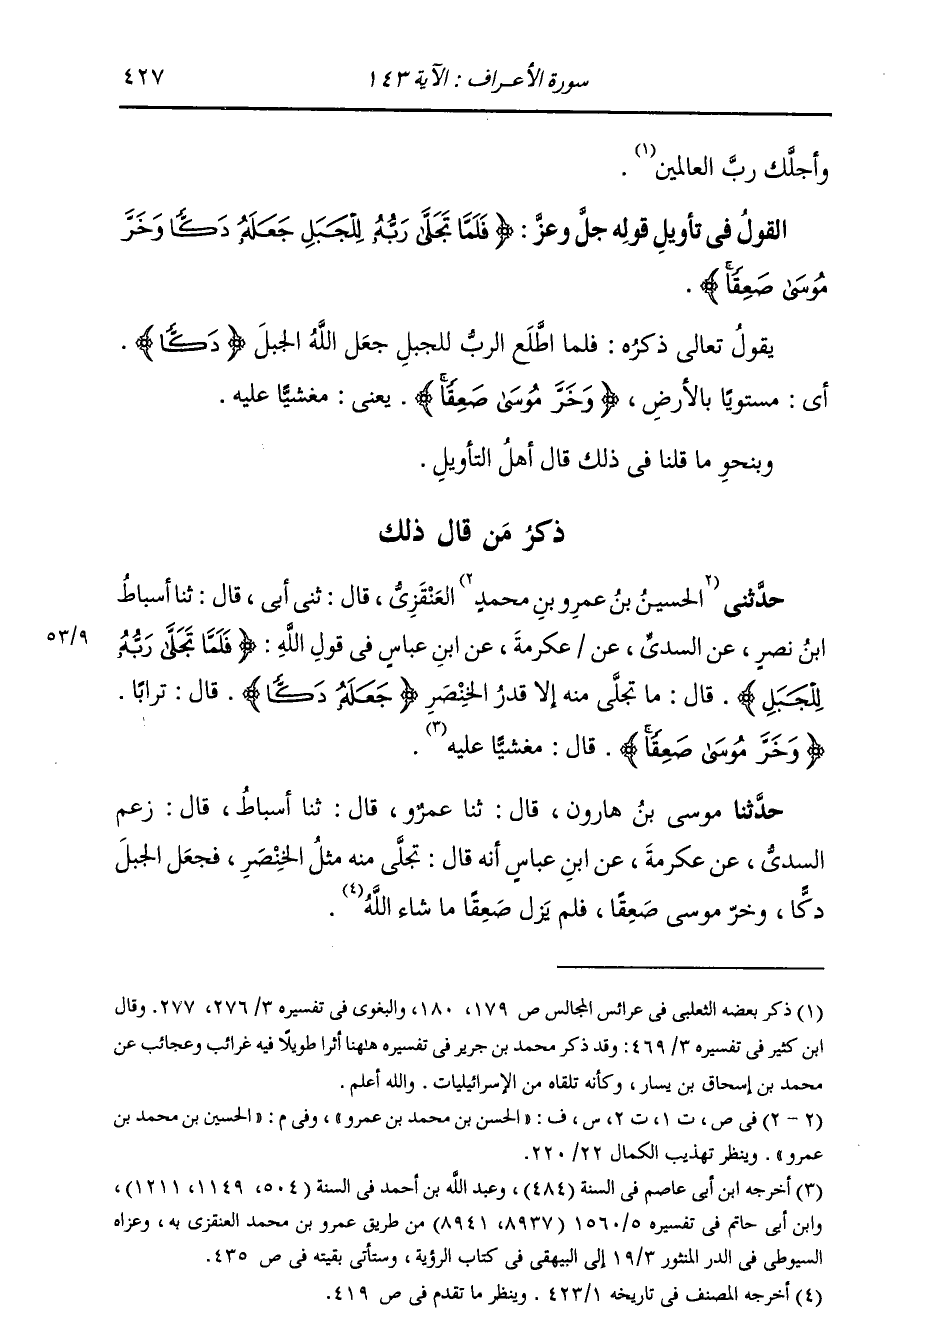 سورة الأعراف : الآية ١٤٣ ٤٢٧
وأجلَّك ربَّ العالمين(١) .
القولُ فى تأويلِ قولِه جلَّ وعزَّ : ﴿ فَلَمَّا تَجَلَّىٰ رَبُّهُۥ لِلْجَبَلِ جَعَلَهُۥ دَكًّا وَخَرَّ
مُوسَىٰ صَعِقًاۚ ﴾ .
يقولُ تعالى ذكرُه : فلما اطَّلَع الربُّ للجبلِ جعَل اللَّهُ الجبلَ ﴿ دَكًّا ﴾ .
أى : مستويًا بالأرضِ ، ﴿ وَخَرَّ مُوسَىٰ صَعِقًاۚ ﴾ . يعنى : مغشيًّا عليه .
وبنحوِ ما قلنا فى ذلك قال أهلُ التأويلِ .
ذكرُ مَن قال ذلك
حدَّثنى (٢الحسينُ بنُ عمرِو بنِ محمدٍ٢) العَنْقَزِىُّ ، قال : ثنى أبى ، قال : ثنا أسباطُ
ابنُ نصرٍ ، عن السدىِّ ، عن / عكرمةَ ، عن ابنِ عباسٍ فى قولِ اللَّهِ : ﴿ فَلَمَّا تَجَلَّىٰ رَبُّهُۥ ٥٣/٩
لِلْجَبَلِ ﴾ . قال : ما تجلَّى منه إلا قدرُ الخِنْصَرِ ﴿ جَعَلَهُۥ دَكًّا ﴾ . قال : ترابًا .
﴿ وَخَرَّ مُوسَىٰ صَعِقًاۚ ﴾ . قال : مغشيًّا عليه(٣) .
حدَّثنا موسى بنُ هارون ، قال : ثنا عمرٌو ، قال : ثنا أسباطُ ، قال : زعم
السدىُّ ، عن عكرمةَ ، عن ابنِ عباسٍ أنه قال : تجلَّى منه مثلُ الخِنْصَرِ ، فجعَل الجبلَ
دكًّا ، وخرّ موسى صَعِقًا ، فلم يَزل صَعِقًا ما شاء اللَّهُ(٤) .
(١) ذكر بعضه الثعلبى فى عرائس المجالس ص ١٧٩، ١٨٠، والبغوى فى تفسيره ٣/ ٢٧٦، ٢٧٧. وقال
ابن كثير فى تفسيره ٣/ ٤٦٩: وقد ذكر محمد بن جرير فى تفسيره هٰهنا أثرا طويلًا فيه غرائب وعجائب عن
محمد بن إسحاق بن يسار ، وكأنه تلقاه من الإسرائيليات . والله أعلم .
(٢ - ٢) فى ص ، ت ١، ت ٢، س ، ف : « الحسن بن محمد بن عمرو » ، وفى م : « الحسين بن محمد بن
عمرو » . وينظر تهذيب الكمال ٢٢/ ٢٢٠.
(٣) أخرجه ابن أبى عاصم فى السنة (٤٨٤) ، وعبد اللَّه بن أحمد فى السنة (٥٠٤، ١١٤٩، ١٢١١) ،
وابن أبى حاتم فى تفسيره ١٥٦٠/٥ (٨٩٣٧، ٨٩٤١) من طريق عمرو بن محمد العنقزى به ، وعزاه
السيوطى فى الدر المنثور ١٩/٣ إلى البيهقى فى كتاب الرؤية ، وستأتى بقيته فى ص ٤٣٥.
(٤) أخرجه المصنف فى تاريخه ٤٢٣/١ . وينظر ما تقدم فى ص ٤١٩.